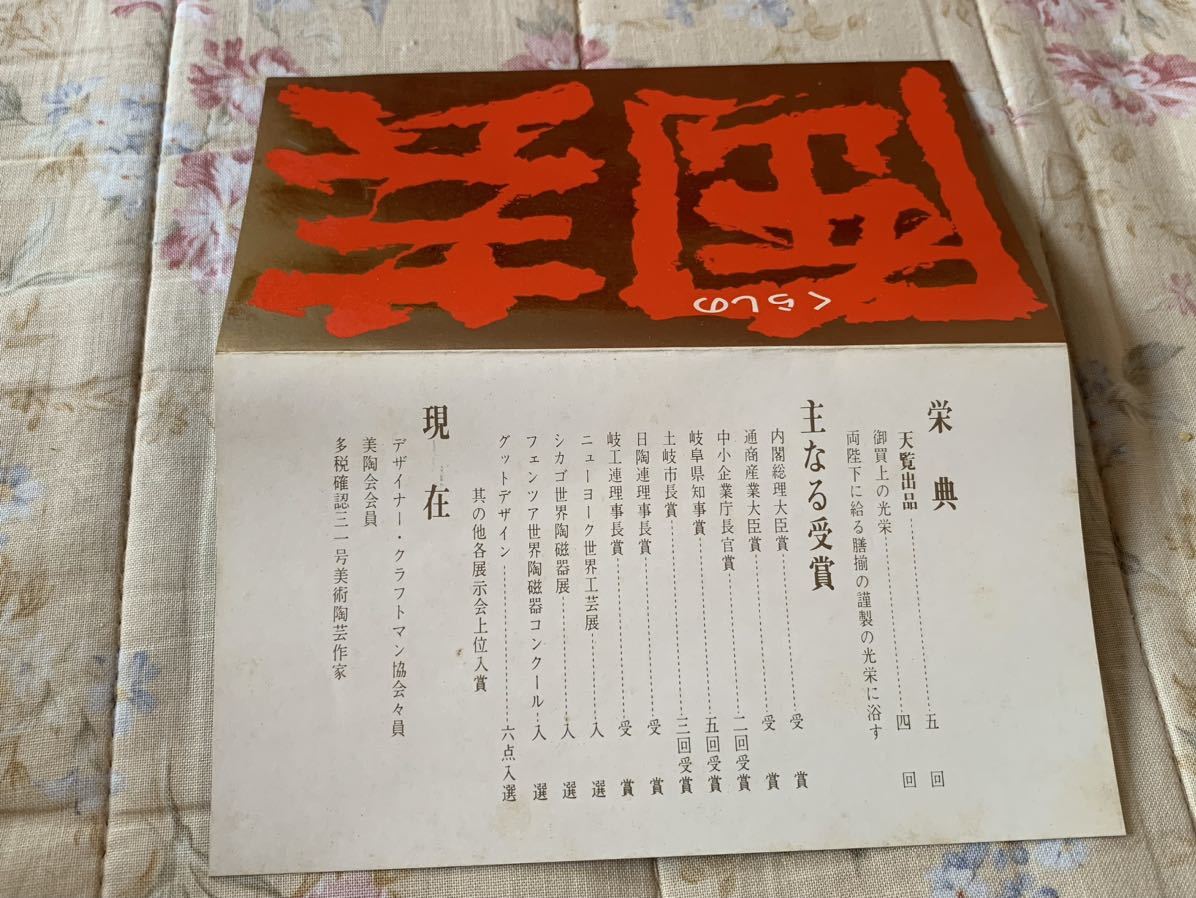 くらしの
栄典
天覧出品……五回
御買上の光栄……四回
両陛下に給る膳揃の謹製の光栄に浴す
主なる受賞
内閣総理大臣賞……受賞
通商産業大臣賞……受賞
中小企業庁長官賞……二回受賞
岐阜県知事賞……五回受賞
土岐市長賞……三回受賞
日陶連理事長賞……受賞
岐工連理事長賞……受賞
ニューヨーク世界工芸展……入選
シカゴ世界陶磁器展……入選
フェンツア世界陶磁器コンクール……入選
グットデザイン……六点入選
其の他各展示会上位入賞
現在
デザイナー・クラフトマン協会々員
美陶会会員
多税確認三一号美術陶芸作家